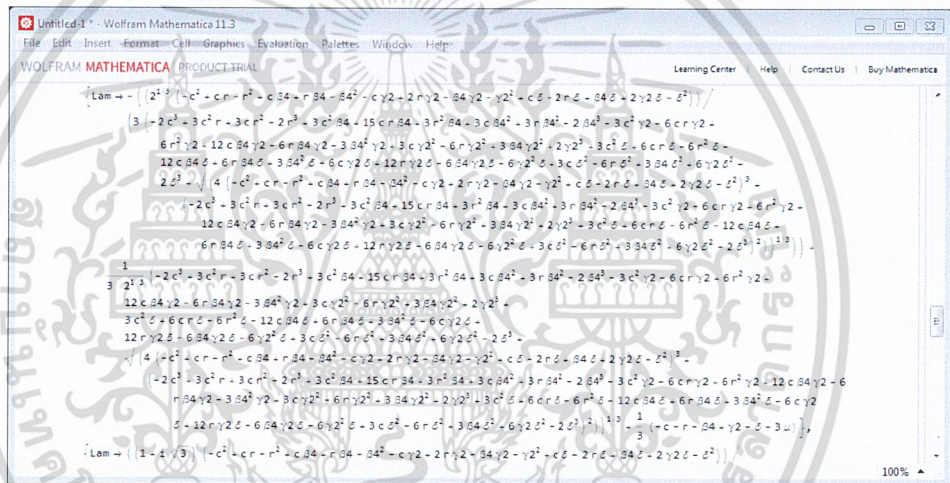 Untitled-1 * - Wolfram Mathematica 11.3
File Edit Insert Format Cell Graphics Evaluation Palettes Window Help
WOLFRAM MATHEMATICA PRODUCT TRIAL Learning Center Help Contact Us Buy Mathematica
{Lam → - ((2^1/3 (-c² + cr - r² + c β4 + r β4 - β4² - c γ2 + 2 r γ2 - β4 γ2 - γ2² + c δ - 2 r δ + β4 δ + 2 γ2 δ - δ²)) /
(3 (-2 c³ + 3 c² r + 3 c r² - 2 r³ + 3 c² β4 + 15 c r β4 + 3 r² β4 + 3 c β4² + 3 r β4² - 2 β4³ - 3 c² γ2 - 6 c r γ2 +
6 r² γ2 - 12 c β4 γ2 - 6 r β4 γ2 - 3 β4² γ2 + 3 c γ2² - 6 r γ2² + 3 β4 γ2² + 2 γ2³ + 3 c² δ + 6 c r δ - 6 r² δ -
12 c β4 δ + 6 r β4 δ + 3 β4² δ - 6 c γ2 δ + 12 r γ2 δ - 6 β4 γ2 δ - 6 γ2² δ + 3 c δ² - 6 r δ² + 3 β4 δ² + 6 γ2 δ² -
2 δ³ + √(4 (-c² + cr - r² + c β4 + r β4 - β4² - c γ2 + 2 r γ2 - β4 γ2 - γ2² + c δ - 2 r δ + β4 δ + 2 γ2 δ - δ²)³ +
(-2 c³ + 3 c² r + 3 c r² - 2 r³ + 3 c² β4 + 15 c r β4 + 3 r² β4 + 3 c β4² + 3 r β4² - 2 β4³ - 3 c² γ2 - 6 c r γ2 + 6 r² γ2 -
12 c β4 γ2 - 6 r β4 γ2 - 3 β4² γ2 + 3 c γ2² - 6 r γ2² + 3 β4 γ2² + 2 γ2³ + 3 c² δ + 6 c r δ - 6 r² δ - 12 c β4 δ +
6 r β4 δ + 3 β4² δ - 6 c γ2 δ + 12 r γ2 δ - 6 β4 γ2 δ - 6 γ2² δ + 3 c δ² - 6 r δ² + 3 β4 δ² + 6 γ2 δ² - 2 δ³)²))^1/3)) +
1/(3 2^1/3) (-2 c³ + 3 c² r + 3 c r² - 2 r³ + 3 c² β4 + 15 c r β4 + 3 r² β4 + 3 c β4² + 3 r β4² - 2 β4³ - 3 c² γ2 - 6 c r γ2 + 6 r² γ2 -
12 c β4 γ2 - 6 r β4 γ2 - 3 β4² γ2 + 3 c γ2² - 6 r γ2² + 3 β4 γ2² + 2 γ2³ +
3 c² δ + 6 c r δ - 6 r² δ - 12 c β4 δ + 6 r β4 δ + 3 β4² δ - 6 c γ2 δ +
12 r γ2 δ - 6 β4 γ2 δ - 6 γ2² δ + 3 c δ² - 6 r δ² + 3 β4 δ² + 6 γ2 δ² - 2 δ³ +
√(4 (-c² + cr - r² + c β4 + r β4 - β4² - c γ2 + 2 r γ2 - β4 γ2 - γ2² + c δ - 2 r δ + β4 δ + 2 γ2 δ - δ²)³ +
(-2 c³ + 3 c² r + 3 c r² - 2 r³ + 3 c² β4 + 15 c r β4 + 3 r² β4 + 3 c β4² + 3 r β4² - 2 β4³ - 3 c² γ2 - 6 c r γ2 + 6 r² γ2 - 12 c β4 γ2 - 6
r β4 γ2 - 3 β4² γ2 + 3 c γ2² - 6 r γ2² + 3 β4 γ2² + 2 γ2³ + 3 c² δ + 6 c r δ - 6 r² δ - 12 c β4 δ + 6 r β4 δ + 3 β4² δ - 6 c γ2
δ + 12 r γ2 δ - 6 β4 γ2 δ - 6 γ2² δ + 3 c δ² - 6 r δ² + 3 β4 δ² + 6 γ2 δ² - 2 δ³)²))^1/3 + 1/3 (-c - r - β4 + γ2 - δ - 3 μ)},
{Lam → ((1 + i √3) (-c² + cr - r² + c β4 + r β4 - β4² - c γ2 + 2 r γ2 - β4 γ2 - γ2² + c δ - 2 r δ + β4 δ + 2 γ2 δ - δ²)) /
100%